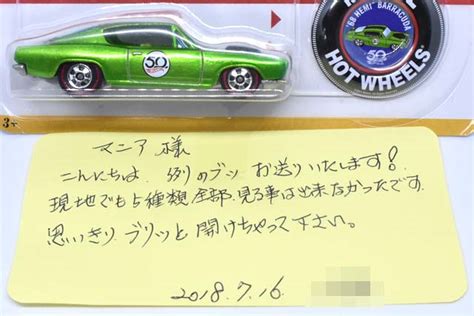 '68 HEMI BARRACUDA
50
HOT WHEELS
50
3+
マニア様
こんにちは、例のブツ お送りいたします!
現地でも5種類全部、見る事は出来なかったです。
思いきり ブリッと 開けちゃって下さい。
2018.7.16